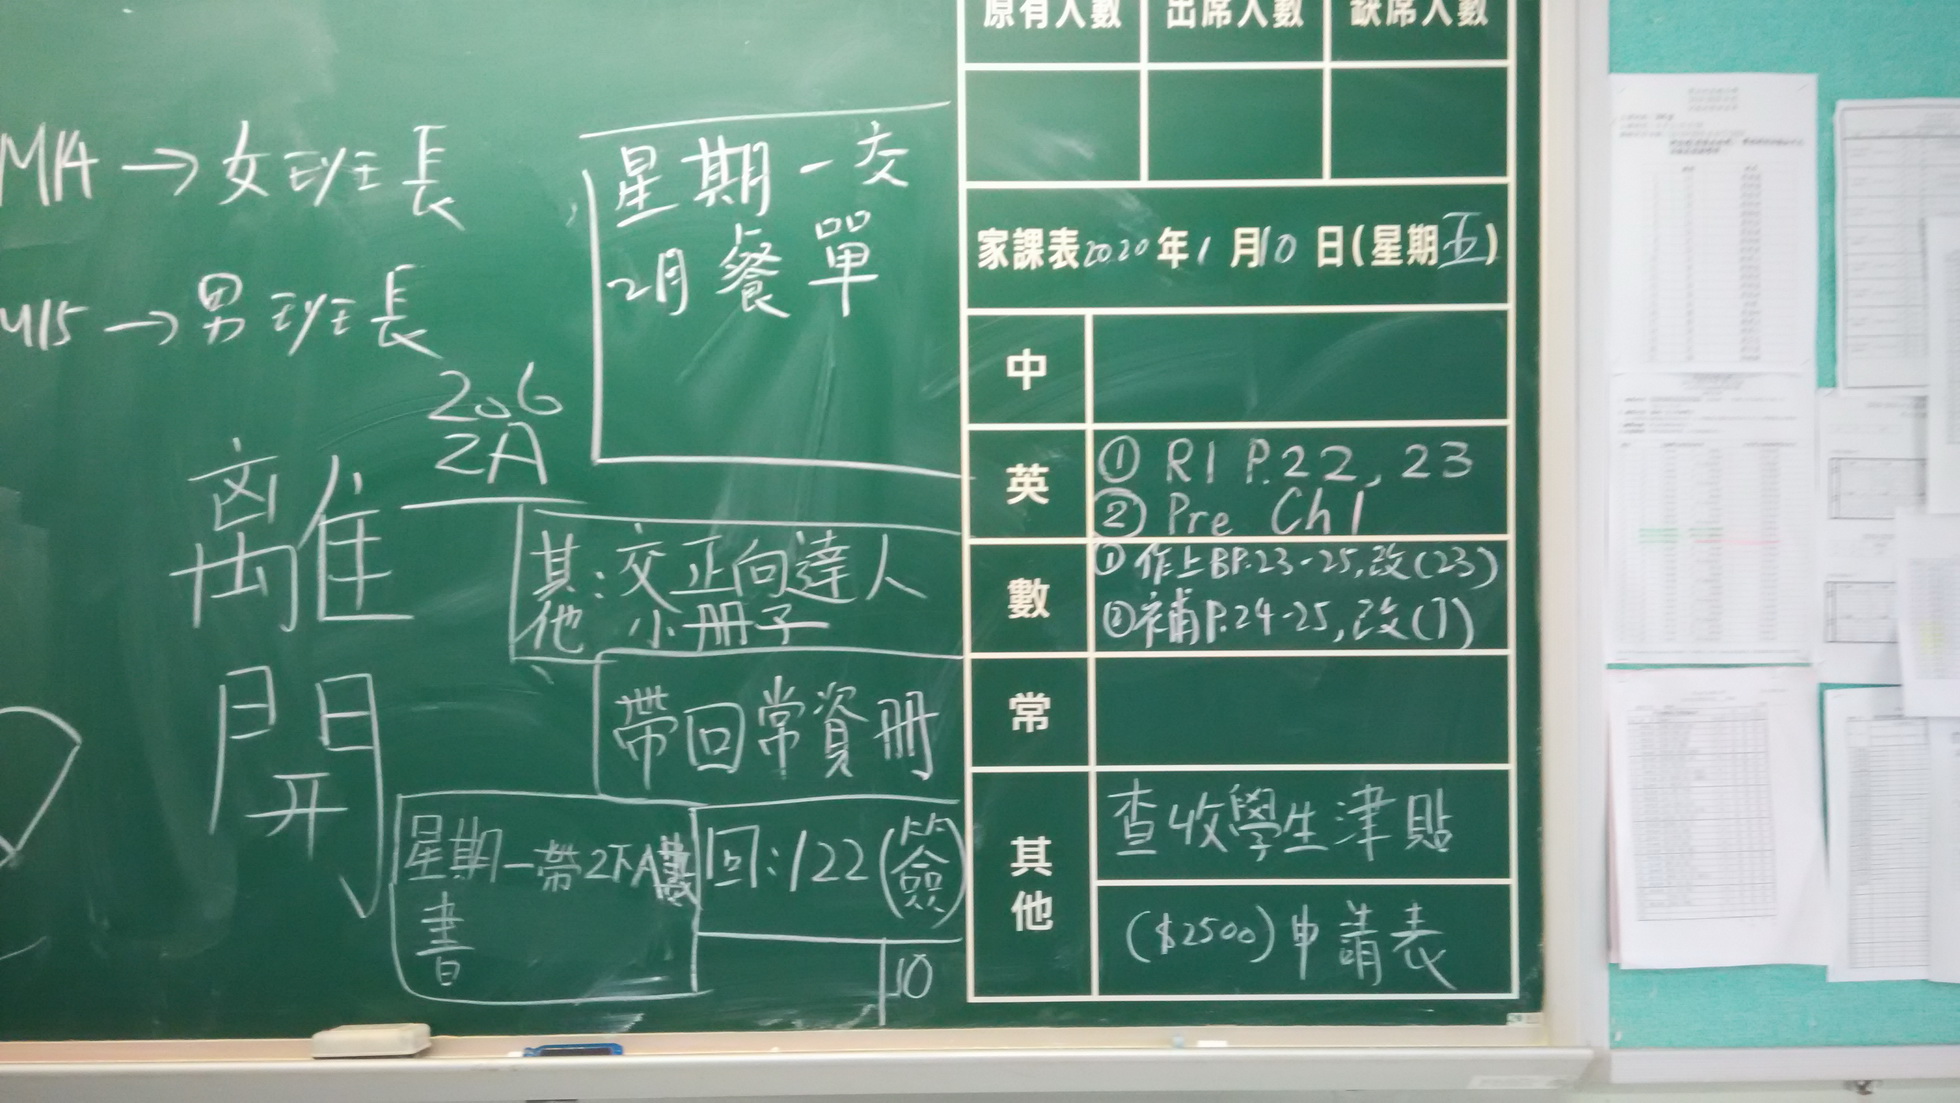 原有人數 出席人數 缺席人數
M14 → 女班長
M15 → 男班長
星期一交
2月餐單
206
2A
離
開
其他：交正向達人
小冊子
帶回常資冊
星期一帶2下A數
書
回：122（簽）
10
家課表2020年1月10日(星期五)
中
英
① R1 P.22, 23
② Pre Ch1
數
① 作上B P.23-25, 改(23)
② 補P.24-25, 改(7)
常
其他
查收學生津貼
($2500)申請表